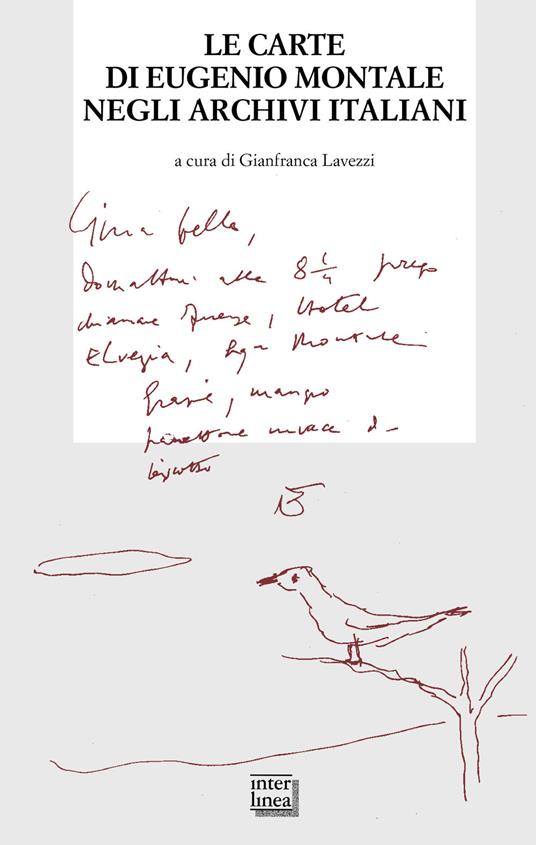 LE CARTE
DI EUGENIO MONTALE
NEGLI ARCHIVI ITALIANI
a cura di Gianfranca Lavezzi
Gina bella,
domattina alle 8 1/4 prego
chiamare Firenze, Hotel
Elvezia, Sig.ra Montale
Grazie, mangio
panettone invece di
biscotto
inter
linea